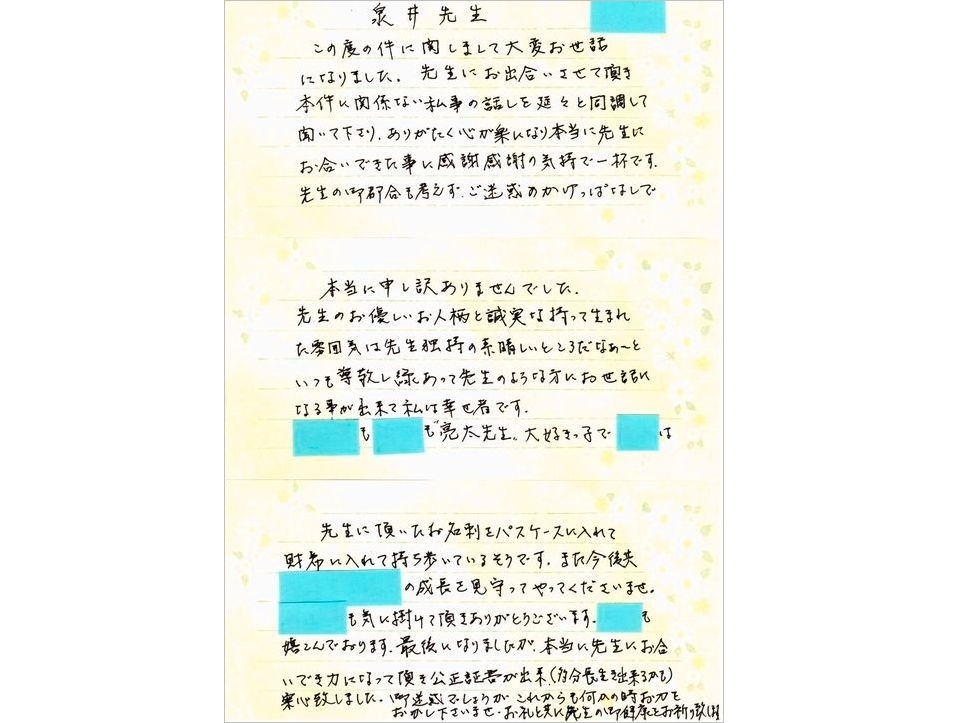 泉井先生
この度の件に関しまして大変お世話
になりました。先生にお出合いさせて頂き
本件に関係ない私事の話しを延々と同調して
聞いて下さり、ありがたく心が楽になり本当に先生に
お合いできた事に感謝感謝の気持で一杯です。
先生の御都合も考えず、ご迷惑のかけっぱなしで
本当に申し訳ありませんでした。
先生のお優しいお人柄と誠実な持って生まれ
た雰囲気は先生独特の素晴しいところだなぁ〜と
いつも尊敬し縁あって先生のような方にお世話に
なる事が出来て私は幸せ者です。
も も 亮太先生。大好きっ子で は
先生に頂いたお名刺をパスケースに入れて
財布に入れて持ち歩いているそうです。また今後共
の成長を見守ってやってくださいませ。
も気に掛けて頂きありがとうございます。 も
喜こんでおります。最後になりましたが、本当に先生にお合
いでき力になって頂き公正証書が出来、(多分長生き出来るかも)
安心致しました。御迷惑でしょうが、これからも何かの時お力を
おかし下さいませ。お礼と共に先生の御健康をお祈り致します